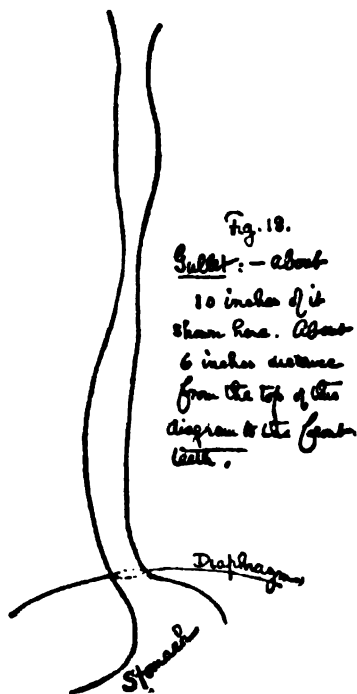 Fig. 18.
Gullet: – About
10 inches of it
shown here. About
6 inches distance
from the top of this
diagram to the front
teeth.
Diaphragm
Stomach